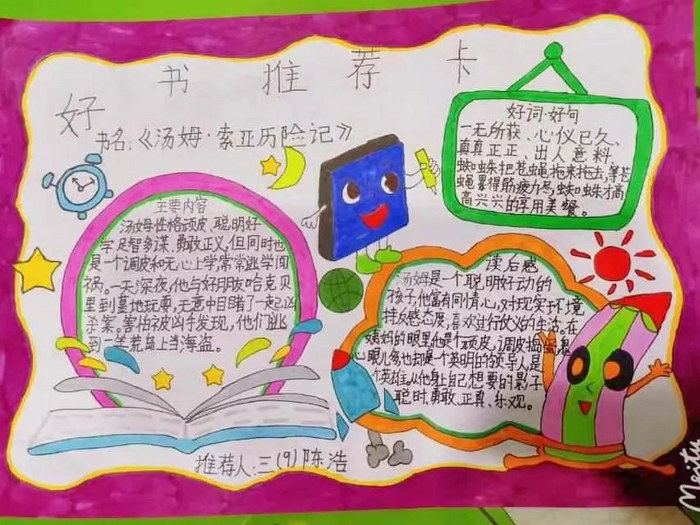 好书推荐卡
书名:《汤姆·索亚历险记》
主要内容
汤姆性格顽皮、聪明好
学足智多谋、勇敢正义,但同时也
是一个调皮和无心上学,常常逃学闯
祸。一天深夜,他与好朋友哈克贝
里到墓地玩耍,无意中目睹了一起凶
杀案。害怕被凶手发现,他们逃
到一荒岛上当海盗。
好词·好句
一无所获、心仪已久、
真真正正、出人意料
蜘蛛把苍蝇拖来拖去,等苍
蝇累得筋疲力尽,蜘蛛才高
高兴兴的享用美餐。
读后感
汤姆是一个聪明好动的
孩子,他富有同情心,对现实环境
持反感态度,喜欢过行侠义的生活。在
姨妈的眼里他是个顽皮、调皮捣蛋
心眼儿多他却是个英明的领导人,是
个英雄,从他身上自己想要的影子
聪时、勇敢、正真、乐观。
推荐人:三(9)陈浩
Meitu